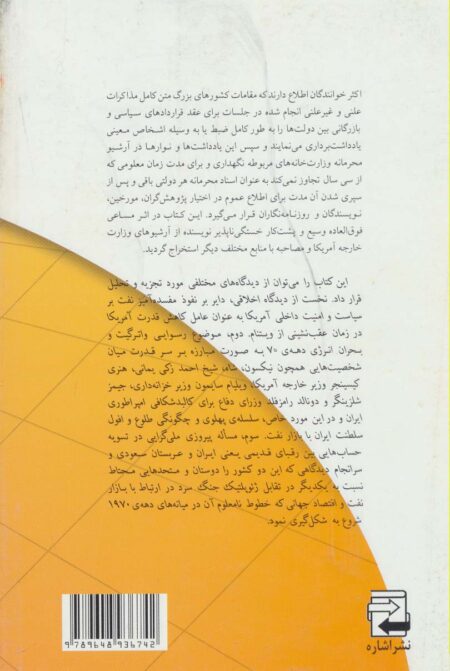 اکثر خوانندگان اطلاع دارند که مقامات کشورهای بزرگ متن کامل مذاکرات
علنی و غیرعلنی انجام شده در جلسات برای عقد قراردادهای سیاسی و
بازرگانی بین دولت‌ها را به طور کامل ضبط یا به وسیله اشخاص معینی
یادداشت‌برداری می‌نمایند و سپس این یادداشت‌ها و نوارها در آرشیو
محرمانه وزارت‌خانه‌های مربوطه نگهداری و برای مدت زمان معلومی که
از سی سال تجاوز نمی‌کند به عنوان اسناد محرمانه هر دولتی باقی و پس از
سپری شدن آن مدت برای اطلاع عموم در اختیار پژوهش‌گران، مورخین،
نویسندگان و روزنامه‌نگاران قرار می‌گیرد. این کتاب در اثر مساعی
فوق‌العاده وسیع و پشت‌کار خستگی‌ناپذیر نویسنده از آرشیوهای وزارت
خارجه آمریکا و مصاحبه با منابع مختلف دیگر استخراج گردید.
این کتاب را می‌توان از دیدگاه‌های مختلفی مورد تجزیه و تحلیل
قرار داد. نخست از دیدگاه اخلاقی، دایر بر نفوذ مفسده‌آمیز نفت بر
سیاست و امنیت داخلی آمریکا به عنوان عامل کاهش قدرت آمریکا
در زمان عقب‌نشینی از ویتنام. دوم، موضوع رسوایی واترگیت و
بحران انرژی دهه‌ی ۷۰ به صورت مبارزه بر سر قدرت میان
شخصیت‌هایی همچون نیکسون، شاه، شیخ احمد زکی یمانی، هنری
کیسینجر وزیر خارجه آمریکا، ویلیام سایمون وزیر خزانه‌داری، جیمز
شلزینگر و دونالد رامزفلد وزرای دفاع برای کالبدشکافی امپراطوری
ایران و در این مورد خاص، سلسله‌ی پهلوی و چگونگی طلوع و افول
سلطنت ایران با بازار نفت. سوم، مسأله پیروزی ملی‌گرایی در تسویه
حساب‌هایی بین رقبای قدیمی یعنی ایران و عربستان سعودی و
سرانجام دیدگاهی که این دو کشور را دوستان و متحدهایی محتاط
نسبت به یکدیگر در تقابل ژئوپلتیک جنگ سرد در ارتباط با بازار
نفت و اقتصاد جهانی که خطوط نامعلوم آن در میانه‌های دهه‌ی ۱۹۷۰
شروع به شکل‌گیری نمود.
9 789648 936742
نشر اشاره